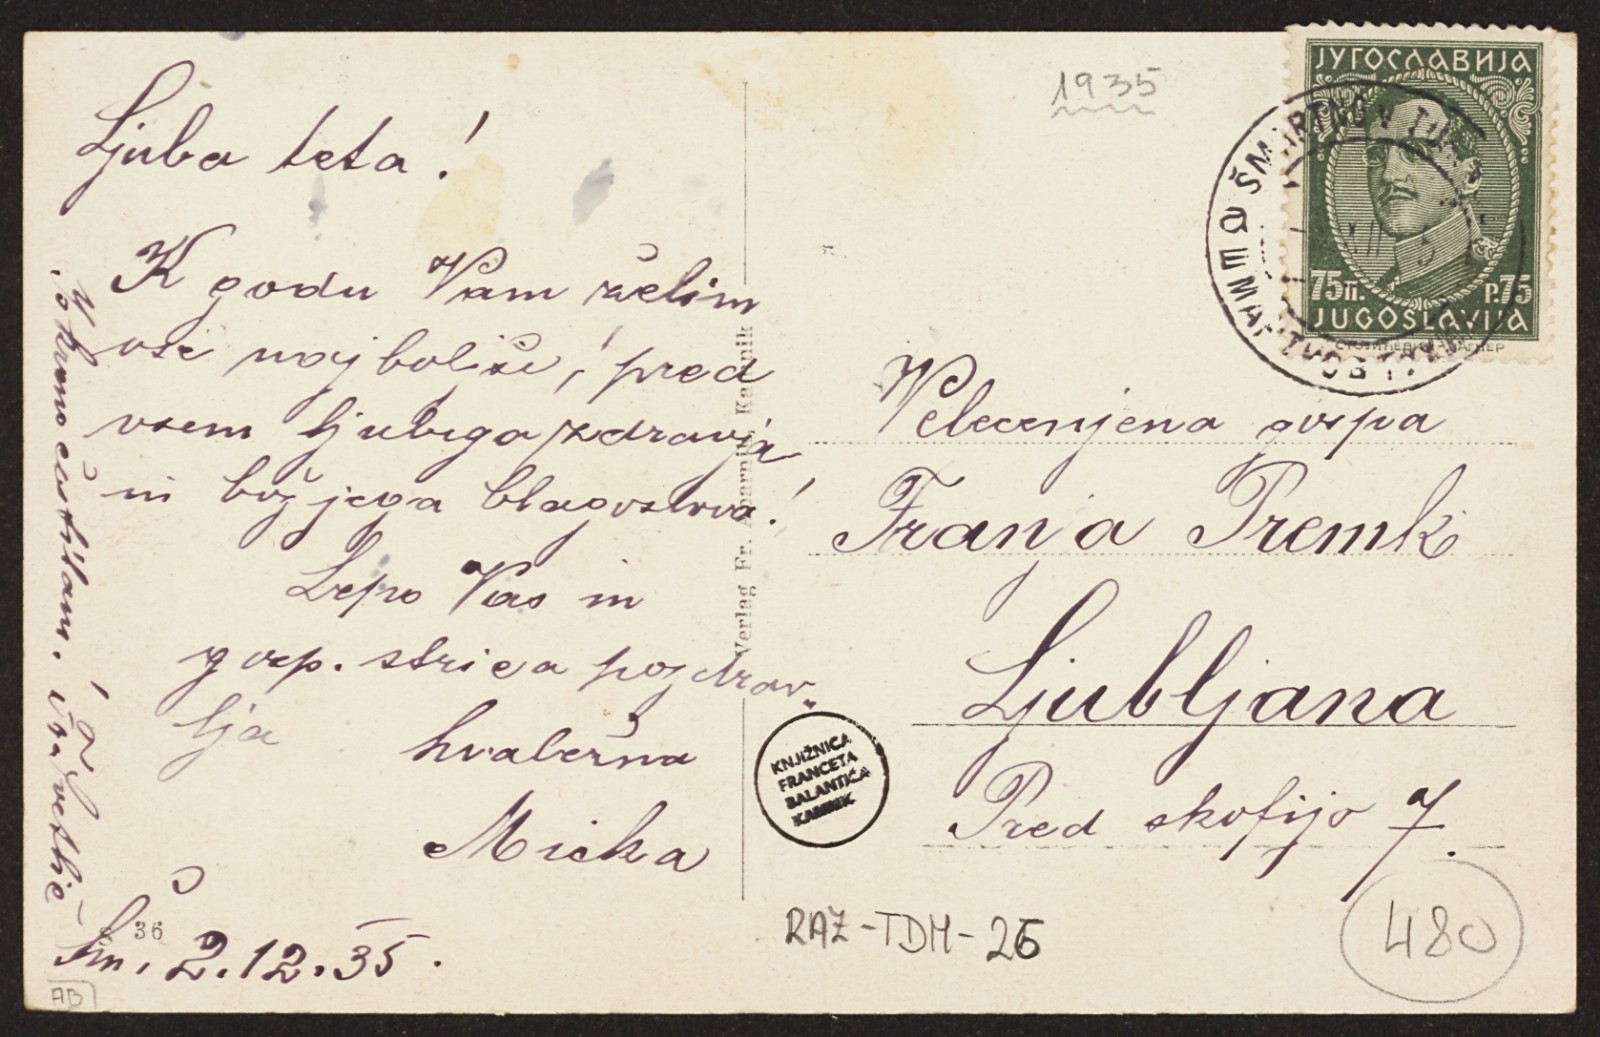 Ljuba teta!
K godu Vam želim
vse najboljše, pred
vsem ljubega zdravja
in božjega blagoslova!
Lepo Vas in
gosp. strica pozdrav
lja hvaležna
Micka
Šm. 2.12.35.
36
AB
Verlag Fr. Kamnik
1935
ЈУГОСЛАВИЈА
75П. P.75
JUGOSLAVIJA
Velecenjena gospa
Franja Premk
Ljubljana
Pred škofijo 7.
KNJIŽNICA
FRANCETA
BALANTIČA
KAMNIK
RAZ-TDM-26
480